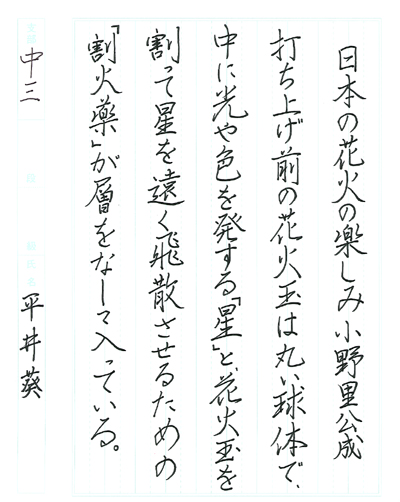 日本の花火の楽しみ 小野里公成
打ち上げ前の花火玉は丸い球体で、
中に光や色を発する「星」と、花火玉を
割って星を遠く飛散させるための
「割火薬」が層をなして入っている。
中三 平井葵